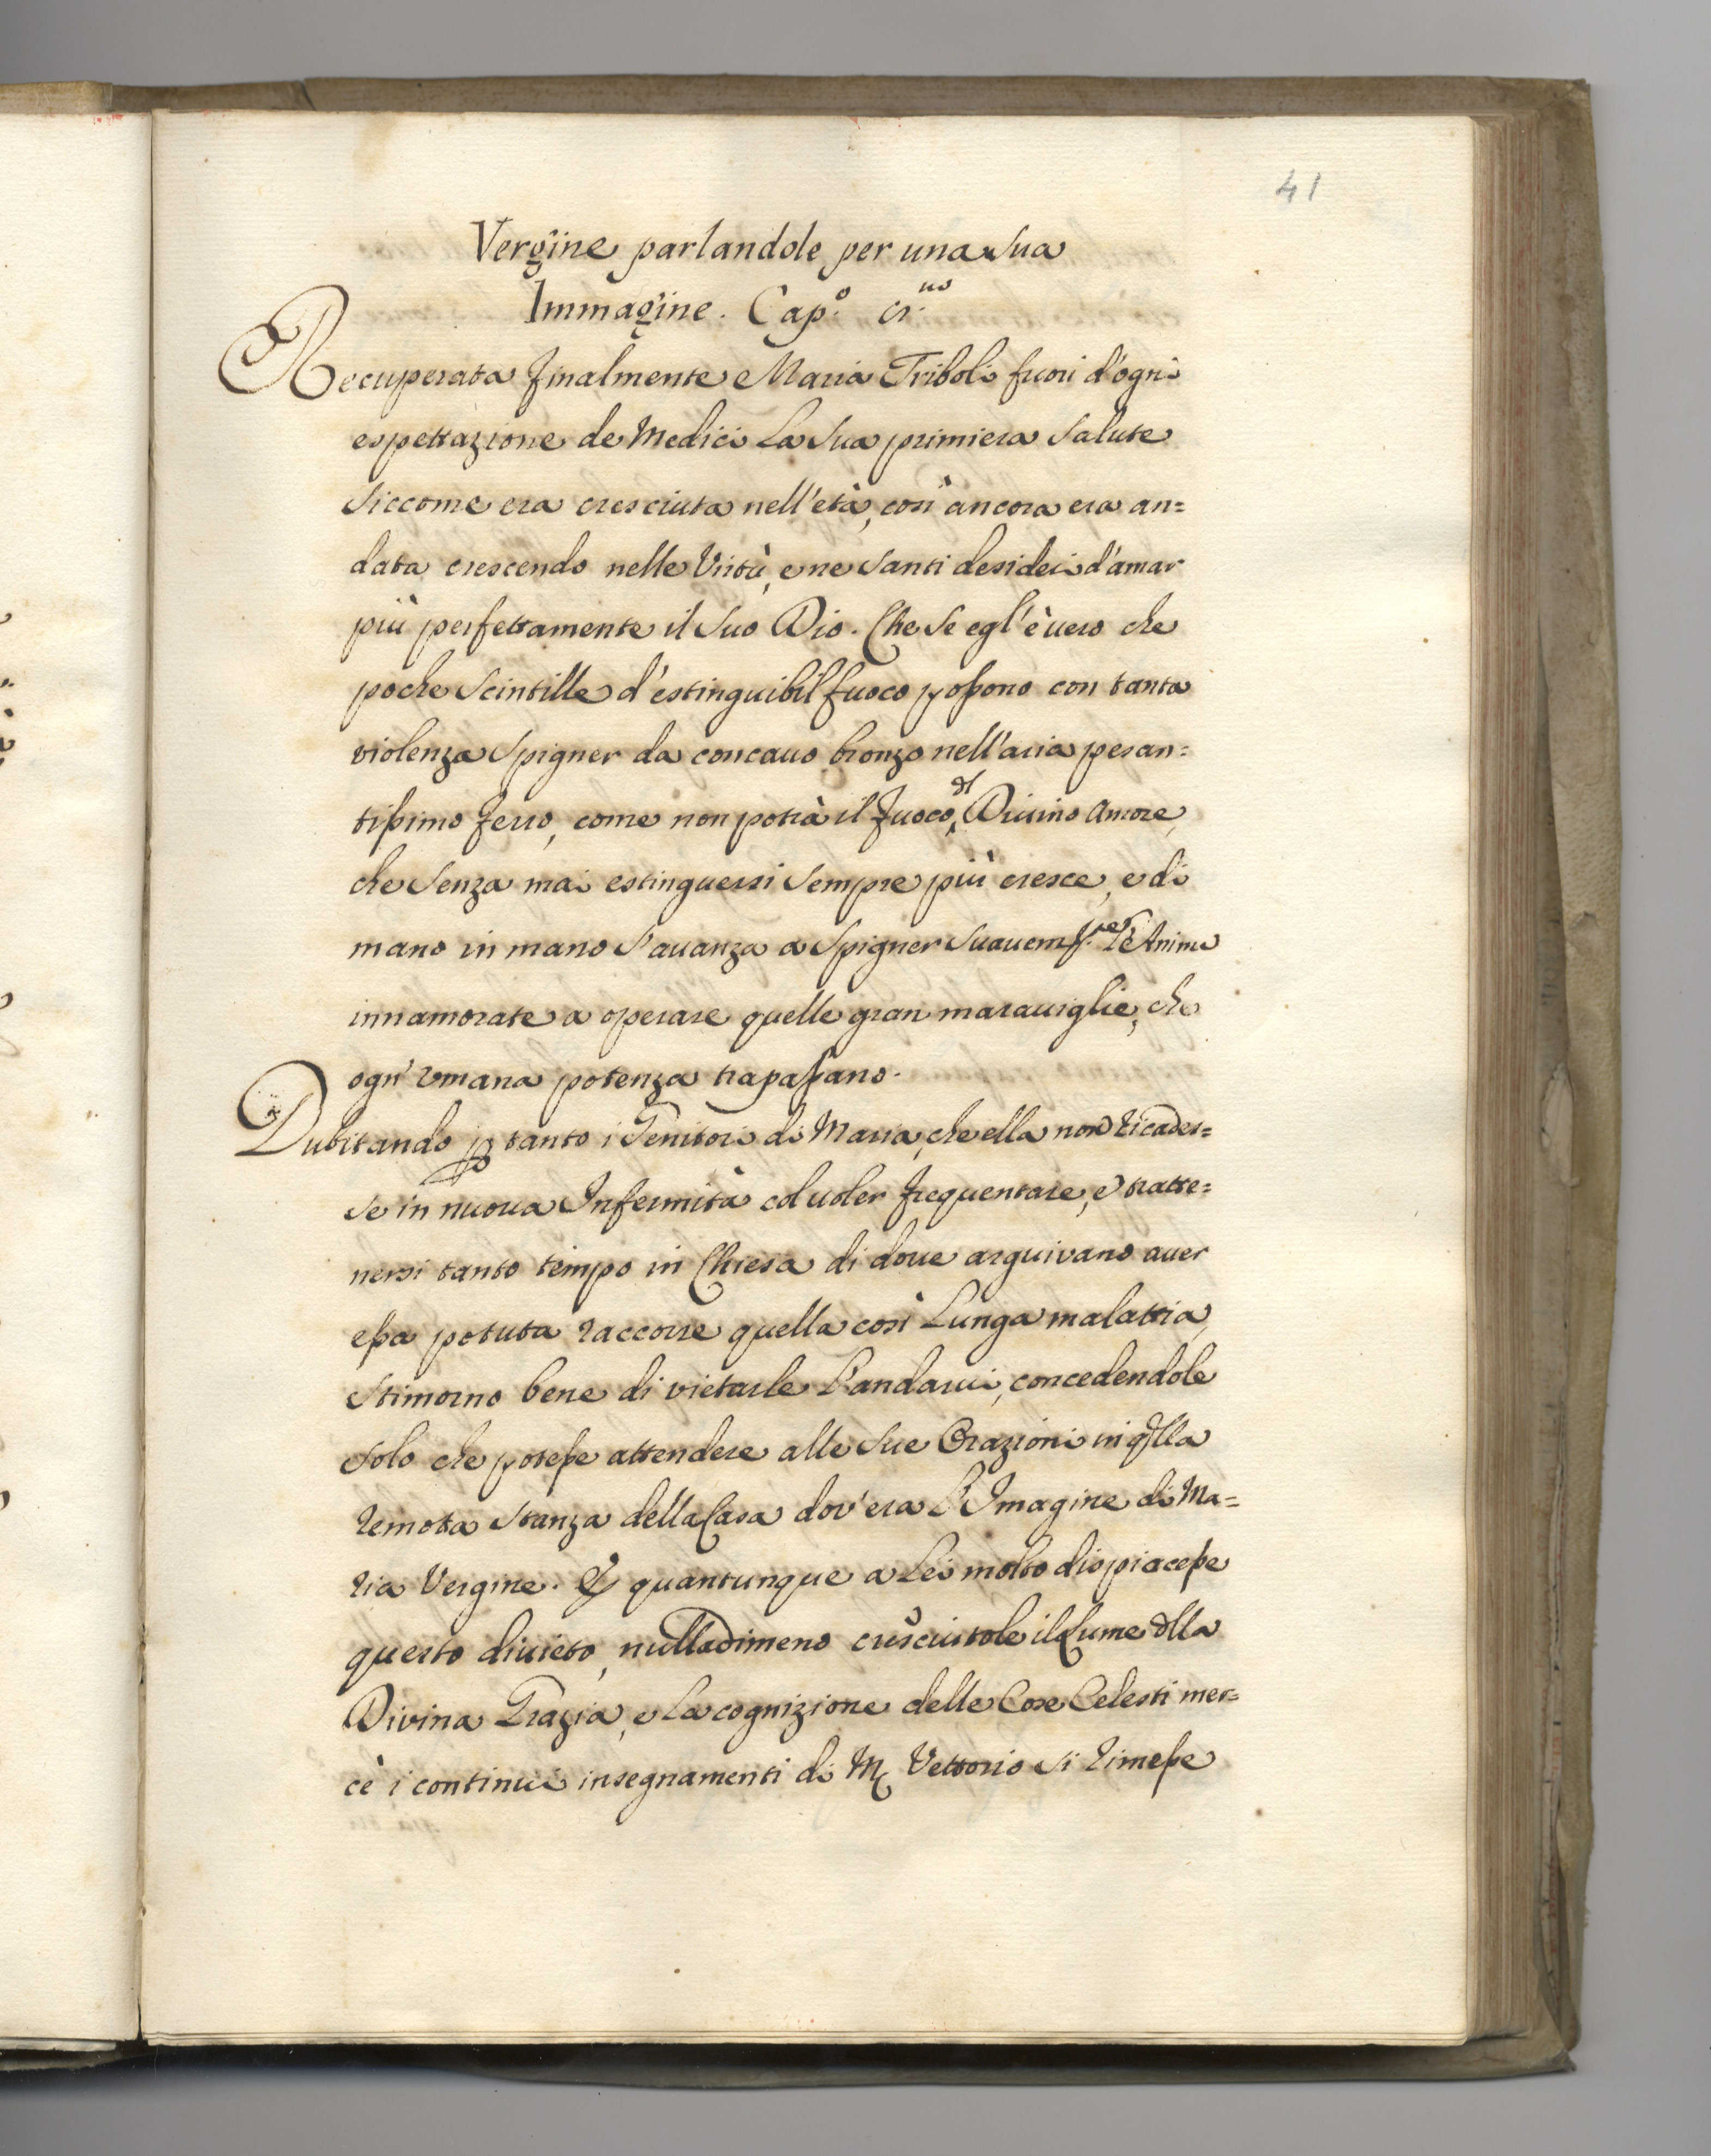 41
Vergine parlandole per una sua
Immagine. Cap.º
Recuperata finalmente Maria Triboli fuori d'ogni
espettazione de Medici La sua primiera salute
siccome era cresciuta nell'età, così ancora era an=
data crescendo nelle Virtù, e ne santi desideri d'amar
più perfettamente il suo Dio. Che se egl'è vero che
poche scintille d'estinguibil fuoco possono con tanta
violenza spigner da concavo bronzo nell'aria pesan=
tissimo ferro, come non potrà il fuoco dl Divino Amore,
che senza mai estinguersi sempre più cresce, e di
mano in mano s'avanza a spigner suavem.te le Anime
innamorate a operare quelle gran maraviglie, che
ogn'umana potenza trapassano.
Dubitando ꝑ tanto i Genitori di Maria, che ella non ricades=
se in nuova Infermità col voler frequentare, e tratte=
nersi tanto tempo in Chiesa di dove arguivano aver
essa potuta raccorre quella così Lunga malattia,
stimorno bene di vietarle L'andarvi, concedendole
solo che potesse attendere alle sue Orazioni in qlla
remota stanza della Casa dov'era L'Imagine di Ma=
ria Vergine. E quantunque a Lei molto dispiacesse
questo divieto, nulladimeno cresciutole il Lume dlla
Divina Grazia, e La cognizione delle Cose Celesti mer=
cè i continui insegnamenti di M. Vettorio si rimesse